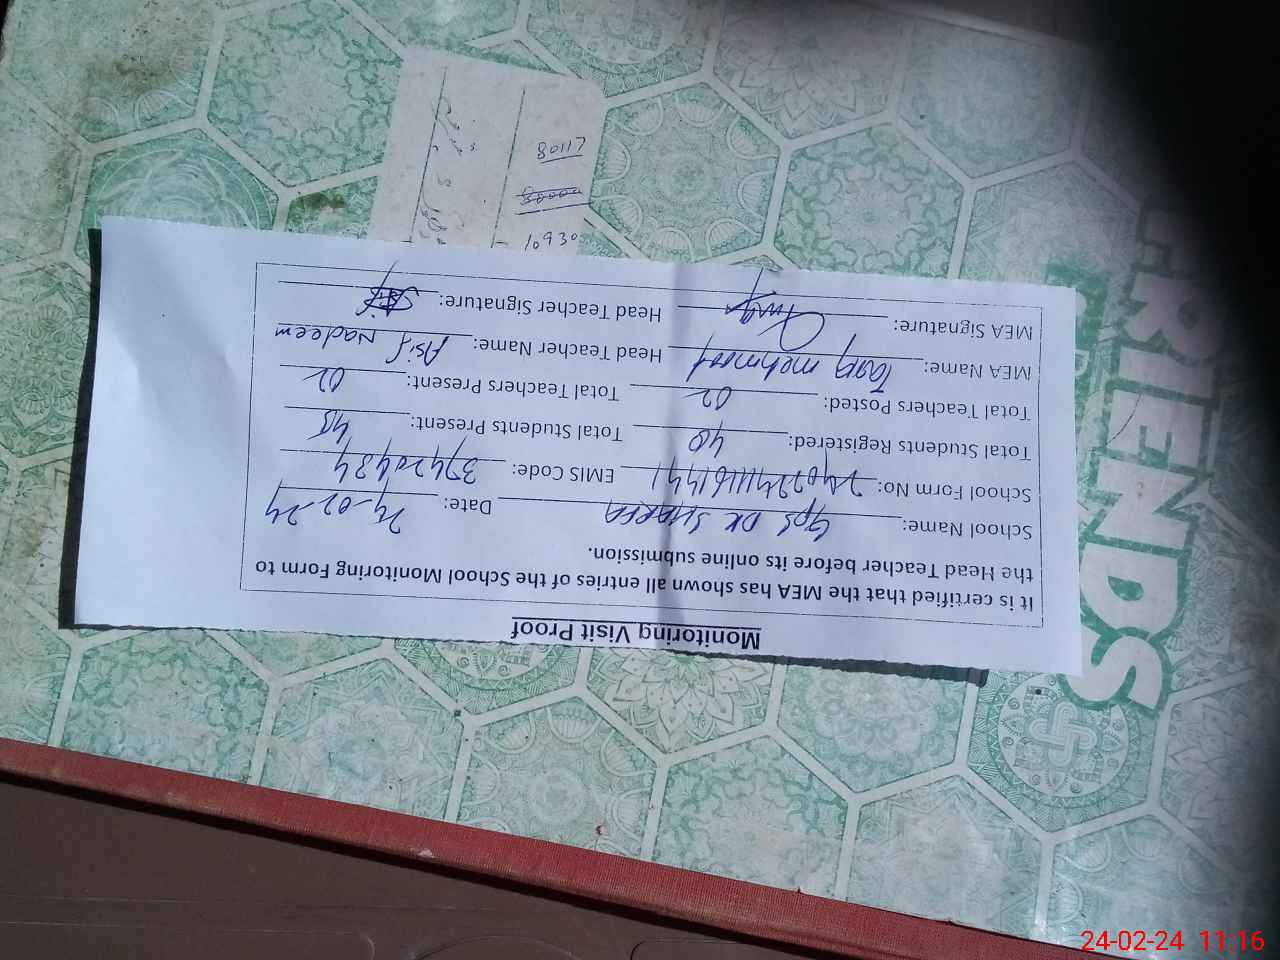 Monitoring Visit Proof
It is certified that the MEA has shown all entries of the School Monitoring Form to
the Head Teacher before its online submission.
School Name: GPS DK SHARFA Date: 24-02-24
School Form No: EMIS Code: 37420484
Total Students Registered: 40 Total Students Present:
Total Teachers Posted: 02 Total Teachers Present: 02
MEA Name: Tariq mehmood Head Teacher Name: Asif Nadeem
MEA Signature: Head Teacher Signature:
10930
80117
FRIENDS
24-02-24 11:16